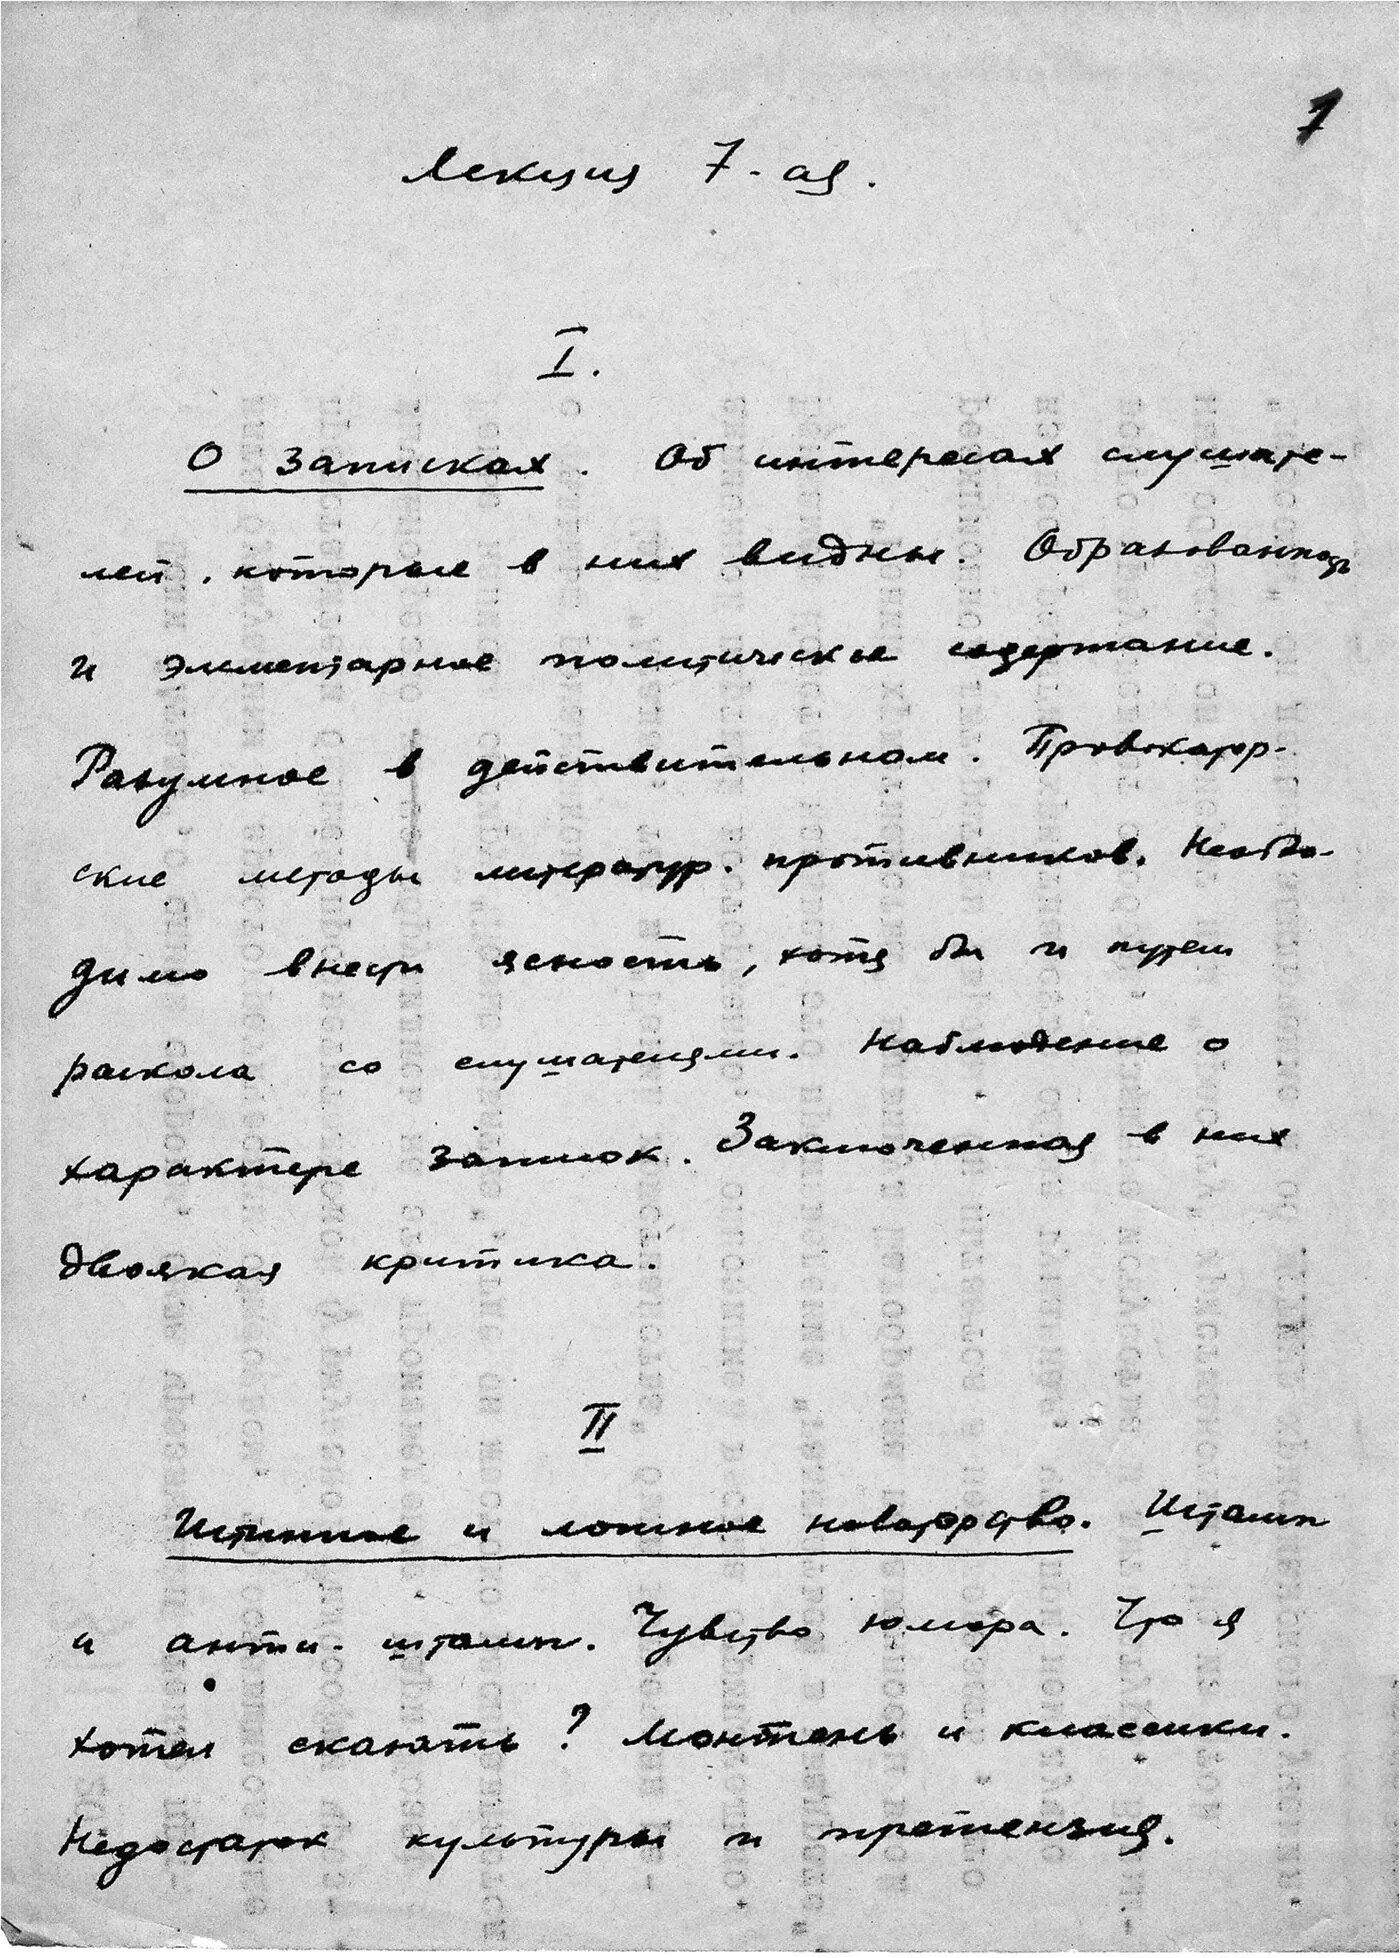 1
Лекция 7-ая.
I.
О записках. Об интересах слушате-
лей, которые в них видны. Образованность
и элементарное политическое содержание.
Разумное в действительном. Провокатор-
ские методы литератур. противников. Необхо-
димо внести ясность, хотя бы и путем
раскола со слушателями. Наблюдение о
характере записок. Заключенная в них
двоякая критика.
II
Истинное и ложное новаторство. Штамп
и анти-штамп. Чувство юмора. Что я
хотел сказать? Монтень и классики.
Недостаток культуры и претензия.